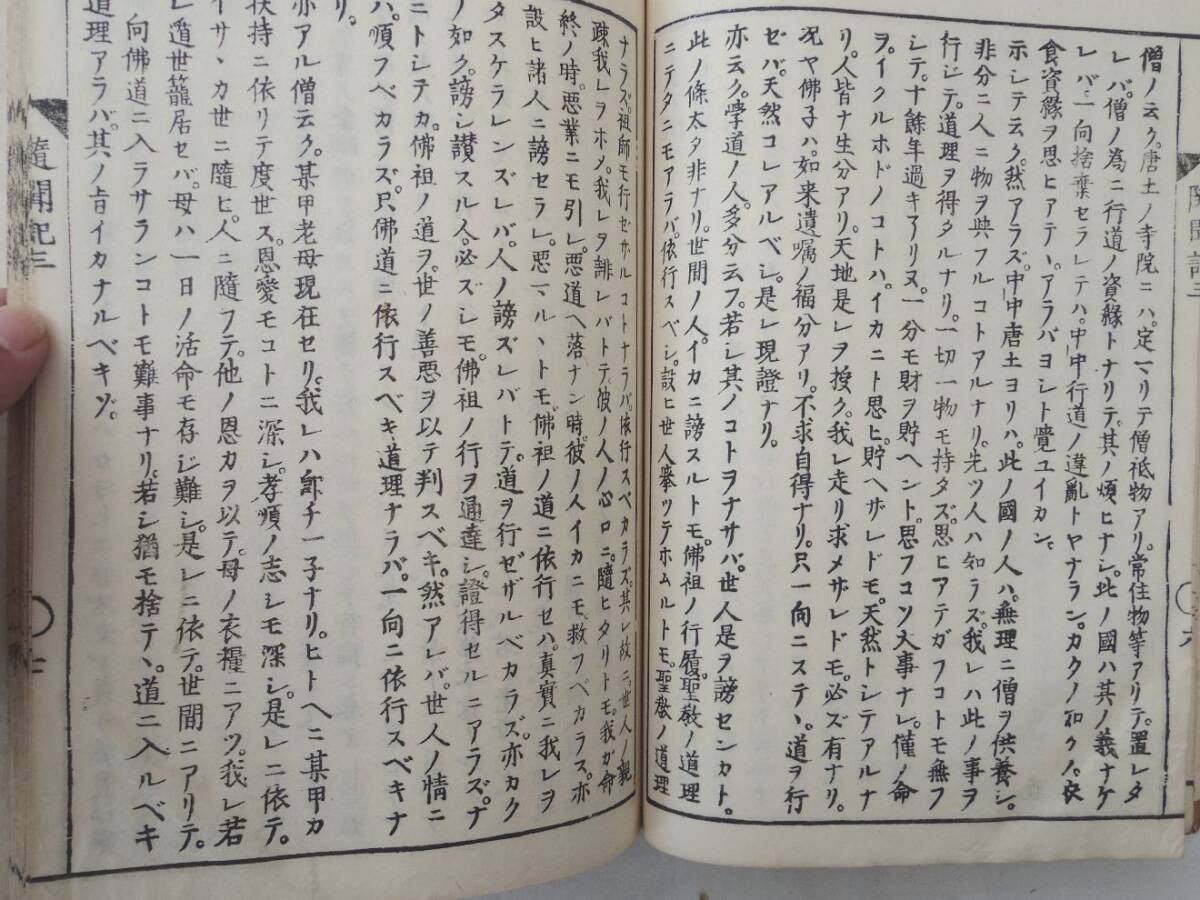 僧ノ云ク。唐土ノ寺院ニハ。定マリテ僧祇物アリ。常住物等アリテ。置レタ
レバ。僧ノ為ニ行道ノ資縁トナリテ。其ノ煩ヒナシ。此ノ國ハ其ノ義ナケ
レバ。一向捨棄セラレテハ。中中行道ノ違亂トヤナラン。カクノ如クノ衣
食資縁ヲ思ヒアテヽ。アラバヨシト覺ユイカン。
示シテ云ク。然アラズ。中中唐土ヨリハ。此ノ國ノ人ハ。無理ニ僧ヲ供養シ。
非分ニ人ニ物ヲ與フルコトアルナリ。先ツ人ハ知ラズ。我レハ此ノ事ヲ
行ジテ。道理ヲ得タルナリ。一切一物モ持タズ。思ヒアテガフコトモ無フ
シテ。十餘年過キヲリヌ。一分モ財ヲ貯ヘント。思フコソ大事ナレ。僅ノ命
ヲ。イクルホドノコトハ。イカニト思ヒ。貯ヘザレドモ。天然トシテアルナ
リ。人皆ナ生分アリ。天地是レヲ授ク。我レ走リ求メザレドモ。必ズ有ナリ。
况ヤ佛子ハ。如来遺嘱ノ福分アリ。不求自得ナリ。只一向ニステヽ。道ヲ行
ゼバ。天然コレアルベシ。是レ現證ナリ。
亦云ク。學道ノ人。多分云フ。若シ其ノコトヲナサバ。世人是ヲ謗センカト。
此ノ條太タ非ナリ。世間ノ人。イカニ謗スルトモ。佛祖ノ行履。聖教ノ道理
ニテタニモアラバ。依行スベシ。設ヒ世人擧ツテホムルトモ。聖教ノ道理
ナラズ。祖師モ行ゼザルコトナラバ。依行スベカラズ。其レ故ニ。世人ノ親
疎我レヲホメ。我レヲ誹レバトテ。彼ノ人ノ心ロニ。隨ヒタリトモ。我ガ命
終ノ時。悪業ニモ引レ。悪道ヘ落ナン時。彼ノ人イカニモ救フベカラス。亦
設ヒ諸人ニ謗セラレ。悪マルヽトモ。佛祖ノ道ニ依行セハ。真實ニ我レヲ
タスケラレンズレバ。人ノ謗ズレバトテ。道ヲ行ゼザルベカラズ。亦カク
ノ如ク。謗シ讃スル人。必ズシモ。佛祖ノ行ヲ通達シ。證得セルニアラズ。ナ
ニトシテカ。佛祖ノ道ヲ。世ノ善悪ヲ以テ判スベキ。然アレバ。世人ノ情ニ
ハ。順フベカラズ。只佛道ニ依行スベキ道理ナラバ。一向ニ依行スベキナ
リ。
亦アル僧云ク。某甲老母現在セリ。我レハ即チ一子ナリ。ヒトヘニ某甲カ
扶持ニ依リテ度世ス。恩愛モコトニ深シ。孝順ノ志シモ深シ。是レニ依テ。
イサヽカ世ニ隨ヒ。人ニ隨フテ。他ノ恩カヲ以テ。母ノ衣糧ニアツ。我レ若
レ遁世籠居セバ。母ハ一日ノ活命モ存ジ難シ。是レニ依テ。世間ニアリテ。
向佛道ニ入ラサランコトモ難事ナリ。若シ猶モ捨テヽ。道ニ入ルベキ
道理アラバ。其ノ旨イカナルベキゾ。
隨聞記三